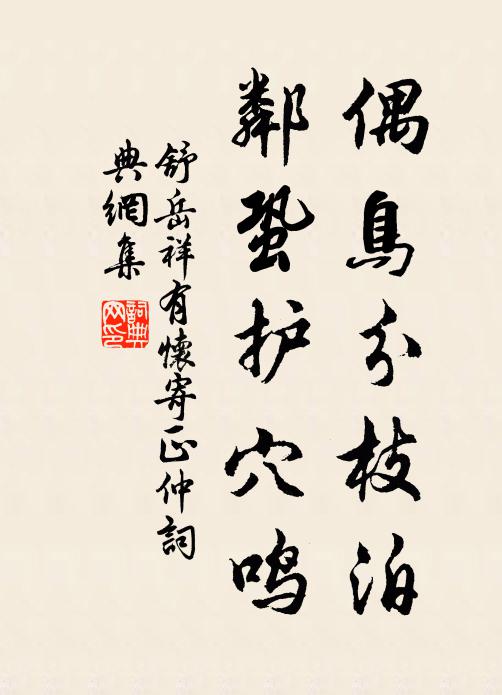 偶鳥分枝泊
鄰蛩护穴鸣
舒岳祥有懷寄正仲詞
典網集
詞典網印